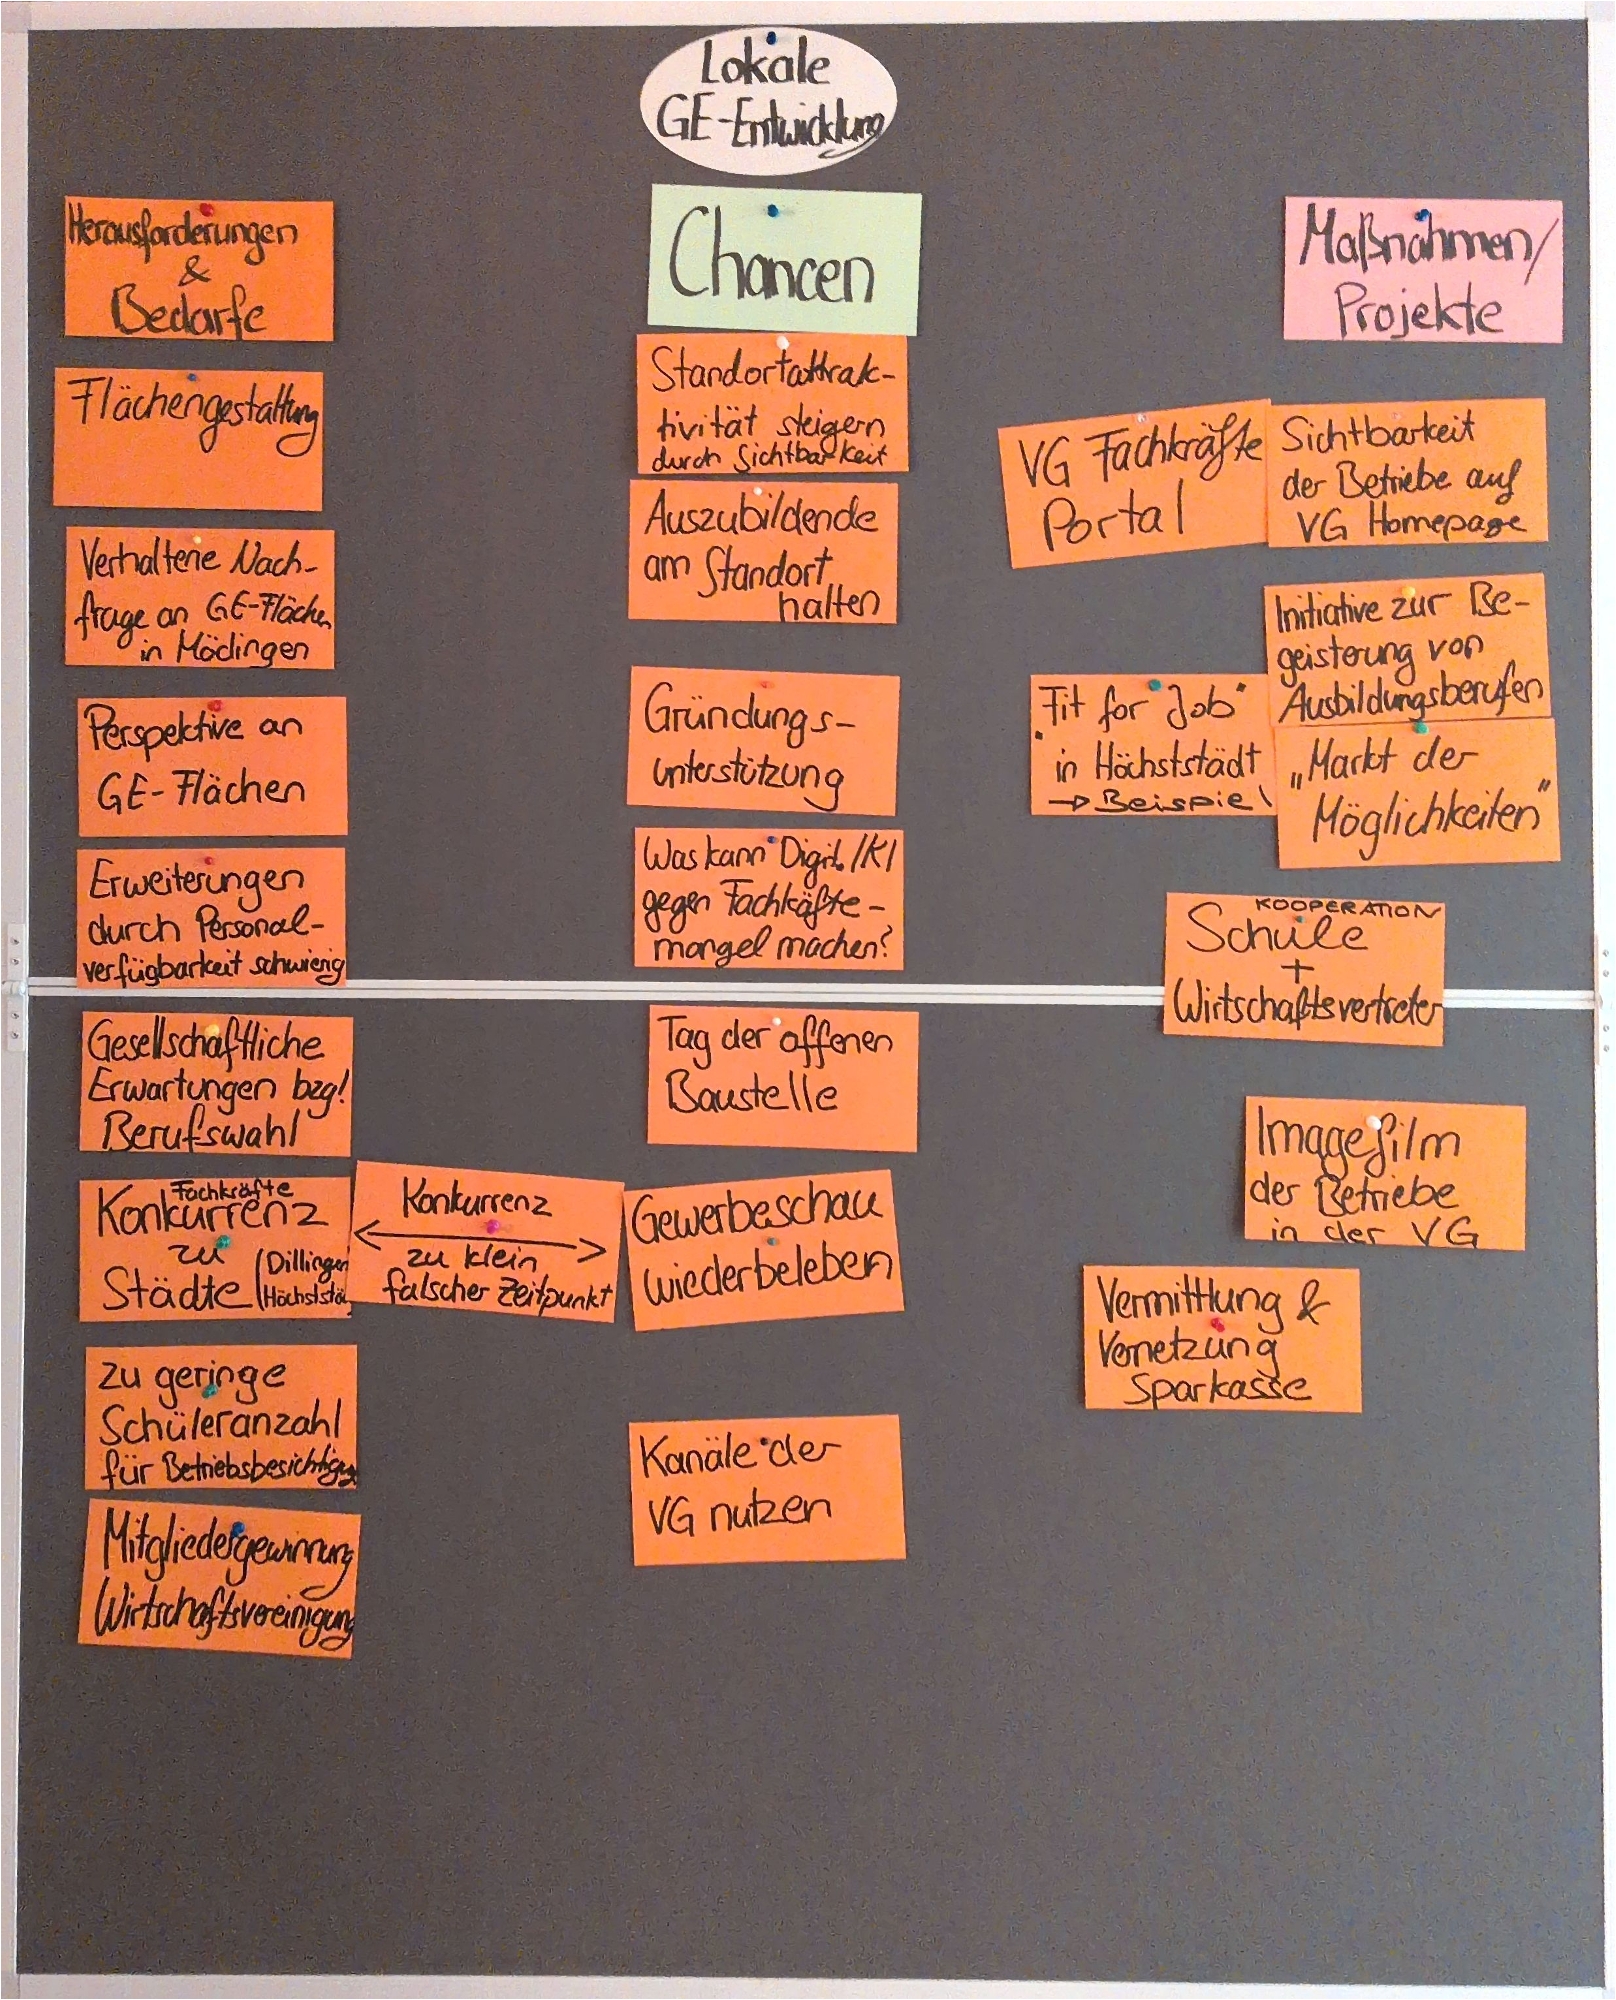 Lokale
GE-Entwicklung
Herausforderungen
&
Bedarfe
Flächengestaltung
Verhaltene Nach-
frage an GE-Flächen
in Mödingen
Perspektive an
GE-Flächen
Erweiterungen
durch Personal-
verfügbarkeit schwierig
Gesellschaftliche
Erwartungen bzgl.
Berufswahl
Fachkräfte
Konkurrenz
zu
Städte (Dillingen
Höchststä
Konkurrenz
zu klein
falscher Zeitpunkt
zu geringe
Schüleranzahl
für Betriebsbesichtigung
Mitgliedergewinnung
Wirtschaftsvereinigung
Chancen
Standortattrak-
tivität steigern
durch Sichtbarkeit
Auszubildende
am Standort
halten
Gründungs-
unterstützung
Was kann Digit./KI
gegen Fachkäfte-
mangel machen?
Tag der offenen
Baustelle
Gewerbeschau
wiederbeleben
Kanäle der
VG nutzen
Maßnahmen/
Projekte
VG Fachkräfte
Portal
Sichtbarkeit
der Betriebe auf
VG Homepage
Initiative zur Be-
geisterung von
Ausbildungsberufen
"Fit for Job"
in Höchststädt
→ Beispiel
„Markt der
Möglichkeiten"
KOOPERATION
Schule
+
Wirtschaftsvertreter
Imagefilm
der Betriebe
in der VG
Vermittlung &
Vernetzung
Sparkasse